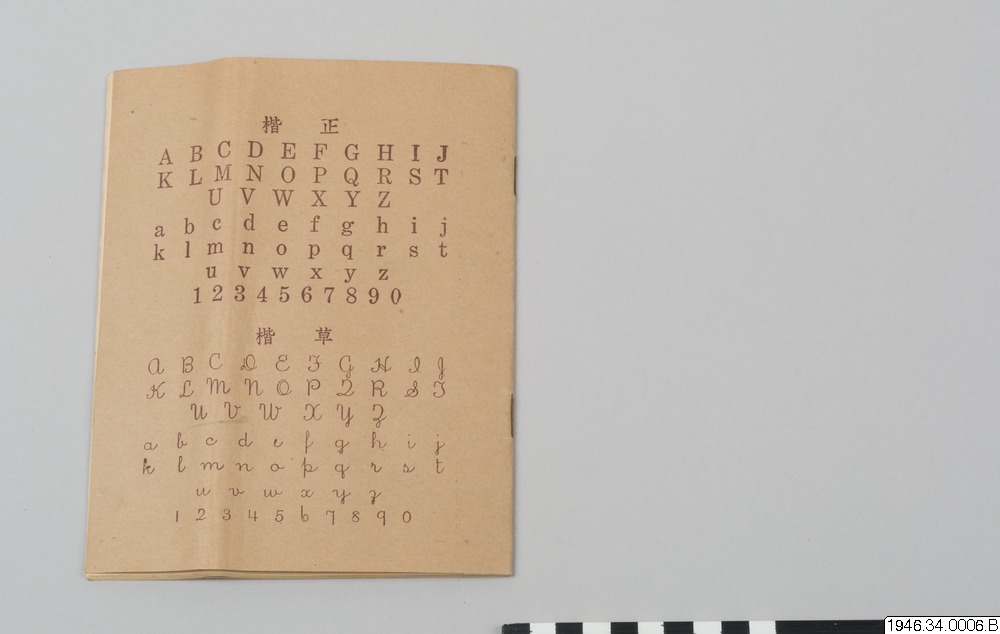 楷 正
A B C D E F G H I J
K L M N O P Q R S T
U V W X Y Z
a b c d e f g h i j
k l m n o p q r s t
u v w x y z
1 2 3 4 5 6 7 8 9 0
楷 草
A B C D E F G H I J
K L M N O P Q R S T
U V W X Y Z
a b c d e f g h i j
k l m n o p q r s t
u v w x y z
1 2 3 4 5 6 7 8 9 0
1946.34.0006.B